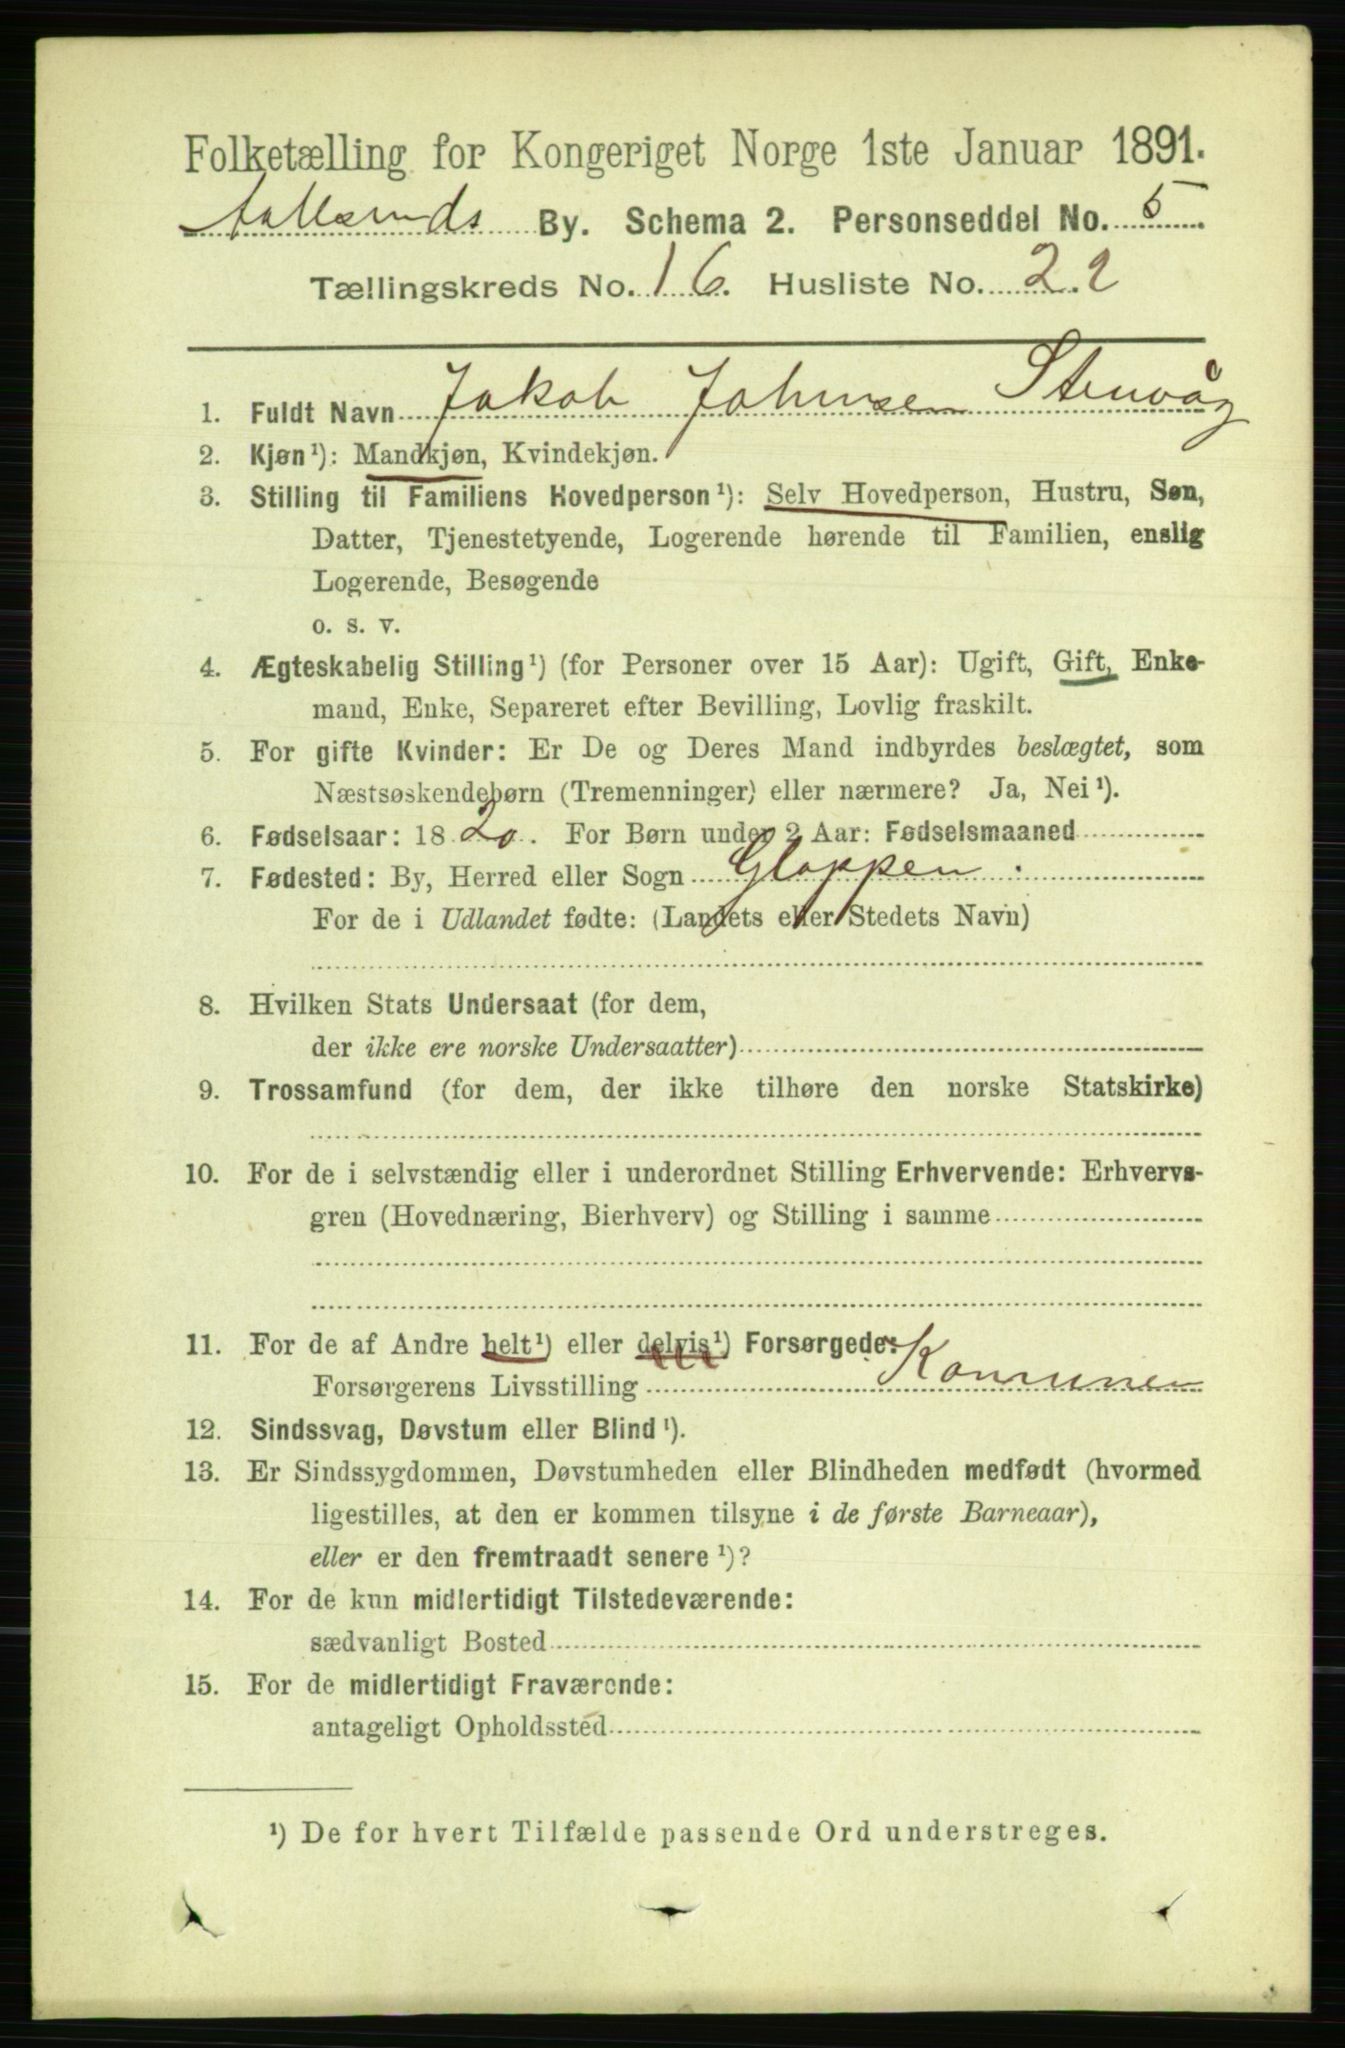 Folketælling for Kongeriget Norge 1ste Januar 1891.
Aalesunds By. Schema 2. Personseddel No. 5
Tællingskreds No. 16. Husliste No. 22
1. Fuldt Navn Jakob Johnsen Stenvåg
2. Kjøn¹): Mandkjøn, Kvindekjøn.
3. Stilling til Familiens Hovedperson¹): Selv Hovedperson, Hustru, Søn,
Datter, Tjenestetyende, Logerende hørende til Familien, enslig
Logerende, Besøgende
o. s. v.
4. Ægteskabelig Stilling¹) (for Personer over 15 Aar): Ugift, Gift, Enke-
mand, Enke, Separeret efter Bevilling, Lovlig fraskilt.
5. For gifte Kvinder: Er De og Deres Mand indbyrdes beslægtet, som
Næstsøskendebørn (Tremenninger) eller nærmere? Ja, Nei¹).
6. Fødselsaar: 1820. For Børn under 2 Aar: Fødselsmaaned
7. Fødested: By, Herred eller Sogn Gloppen
For de i Udlandet fødte: (Landets eller Stedets Navn)
8. Hvilken Stats Undersaat (for dem,
der ikke ere norske Undersaatter)
9. Trossamfund (for dem, der ikke tilhøre den norske Statskirke)
10. For de i selvstændig eller i underordnet Stilling Erhvervende: Erhvervs-
gren (Hovednæring, Bierhverv) og Stilling i samme
11. For de af Andre helt¹) eller delvis¹) Forsørgede:
Forsørgerens Livsstilling Komunen
12. Sindssvag, Døvstum eller Blind¹).
13. Er Sindssygdommen, Døvstumheden eller Blindheden medfødt (hvormed
ligestilles, at den er kommen tilsyne i de første Barneaar),
eller er den fremtraadt senere¹)?
14. For de kun midlertidigt Tilstedeværende:
sædvanligt Bosted
15. For de midlertidigt Fraværende:
antageligt Opholdssted
¹) De for hvert Tilfælde passende Ord understreges.